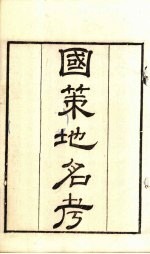 國策地名考